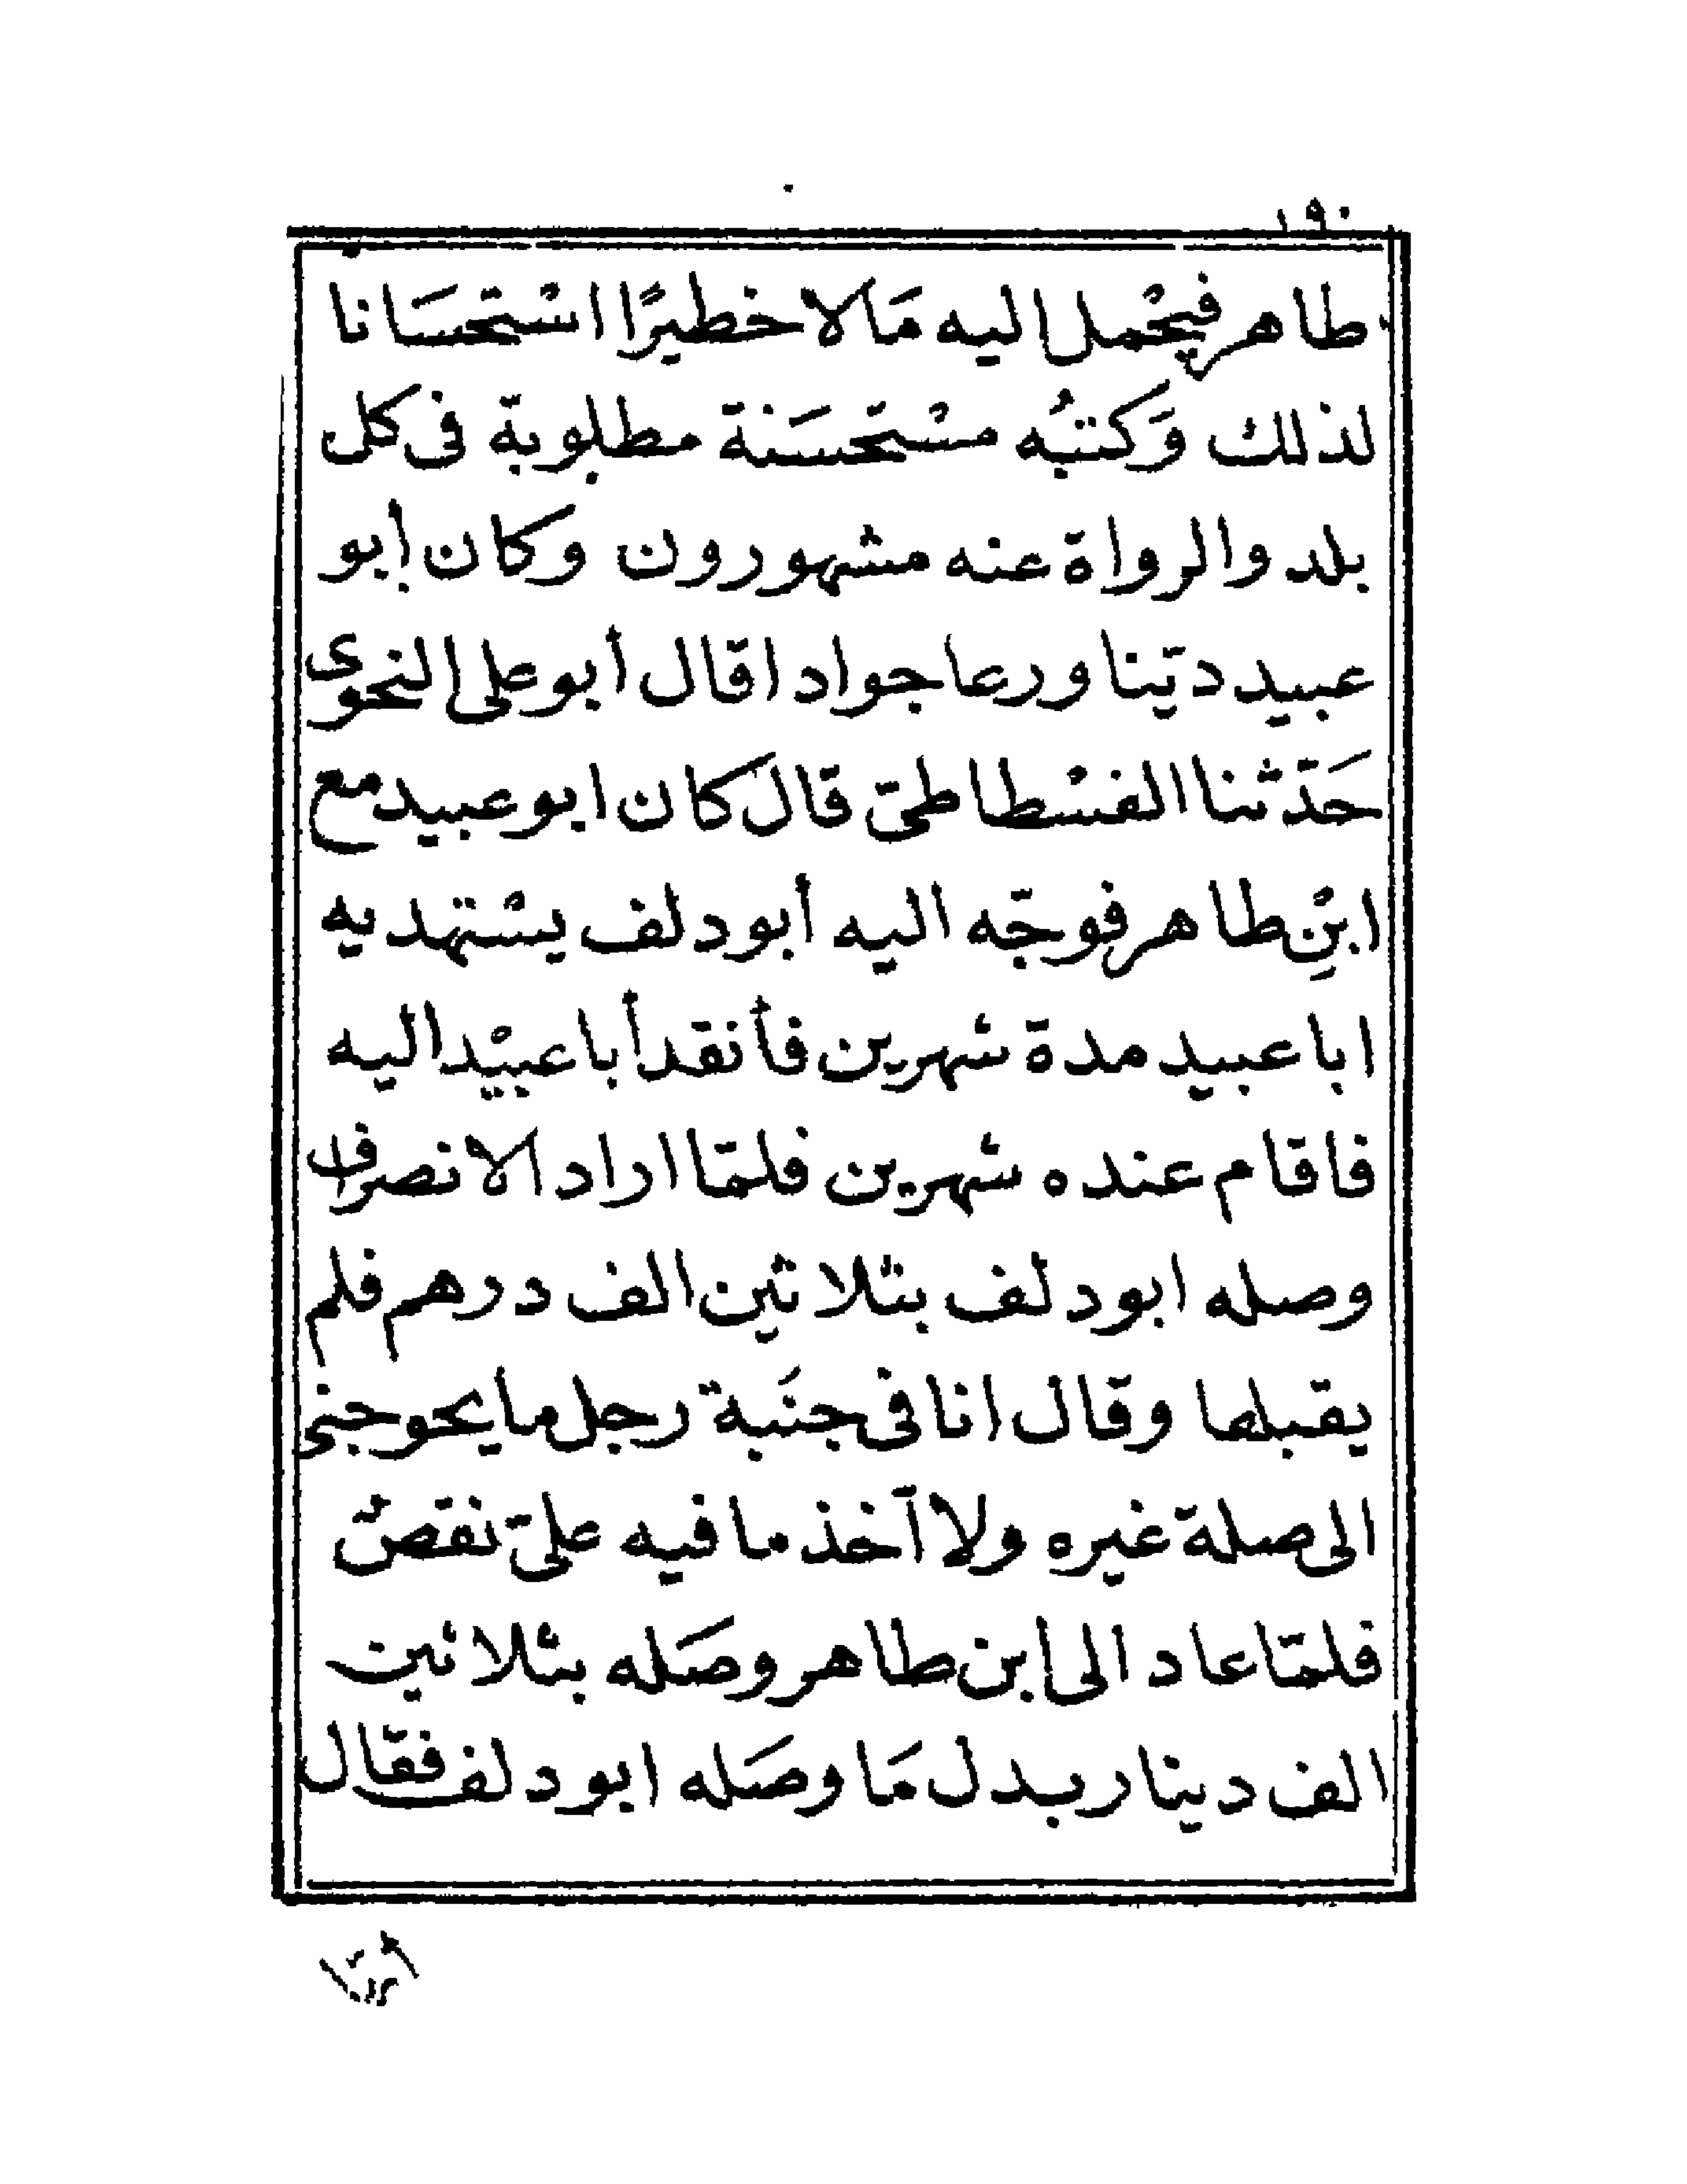 ١٩٠
طاهر فيحْمل اليه مَالا خطيرًا اسْتحسَانا
لذلك وَكتبُه مسْتحسَنة مطلوبة فى كل
بلد والرواة عنه مشهورون وكان أبو
عبيد ديّنا ورعا جوادا قال أبو على النحوى
حَدّثنا الفسْطاطىّ قال كان ابو عبيد مع
ابْنِ طاهر فوجّه اليه أبو دلف يسْتهديه
ابا عبيد مدة شهرين فأنقد أبا عبيْد اليه
فاقام عنده شهرين فلمّا اراد الانصراف
وصله ابو دلف بثلاثين الف درهم فلم
يقبلها وقال انا فى جنَبة رجل ما يحوجنى
الى صلة غيره ولا آخذ ما فيه علىّ نقصٌ
فلمّا عاد الى ابن طاهر وصَله بثلاثين
الف دينار بدل مَا وصَله ابو دلف فقال